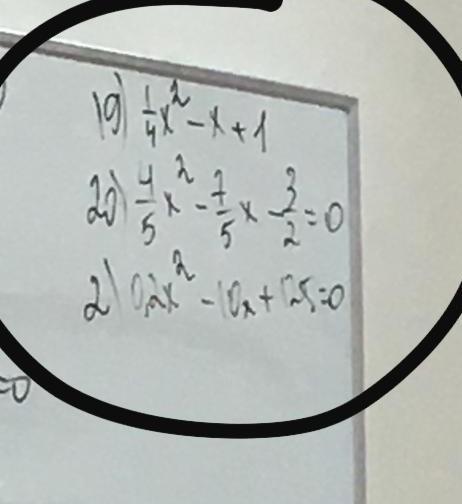 19) 1/4 x² - x + 1
20) 4/5 x² - 7/5 x - 3/2 = 0
2) 0,2x² - 10x + 125 = 0
=0